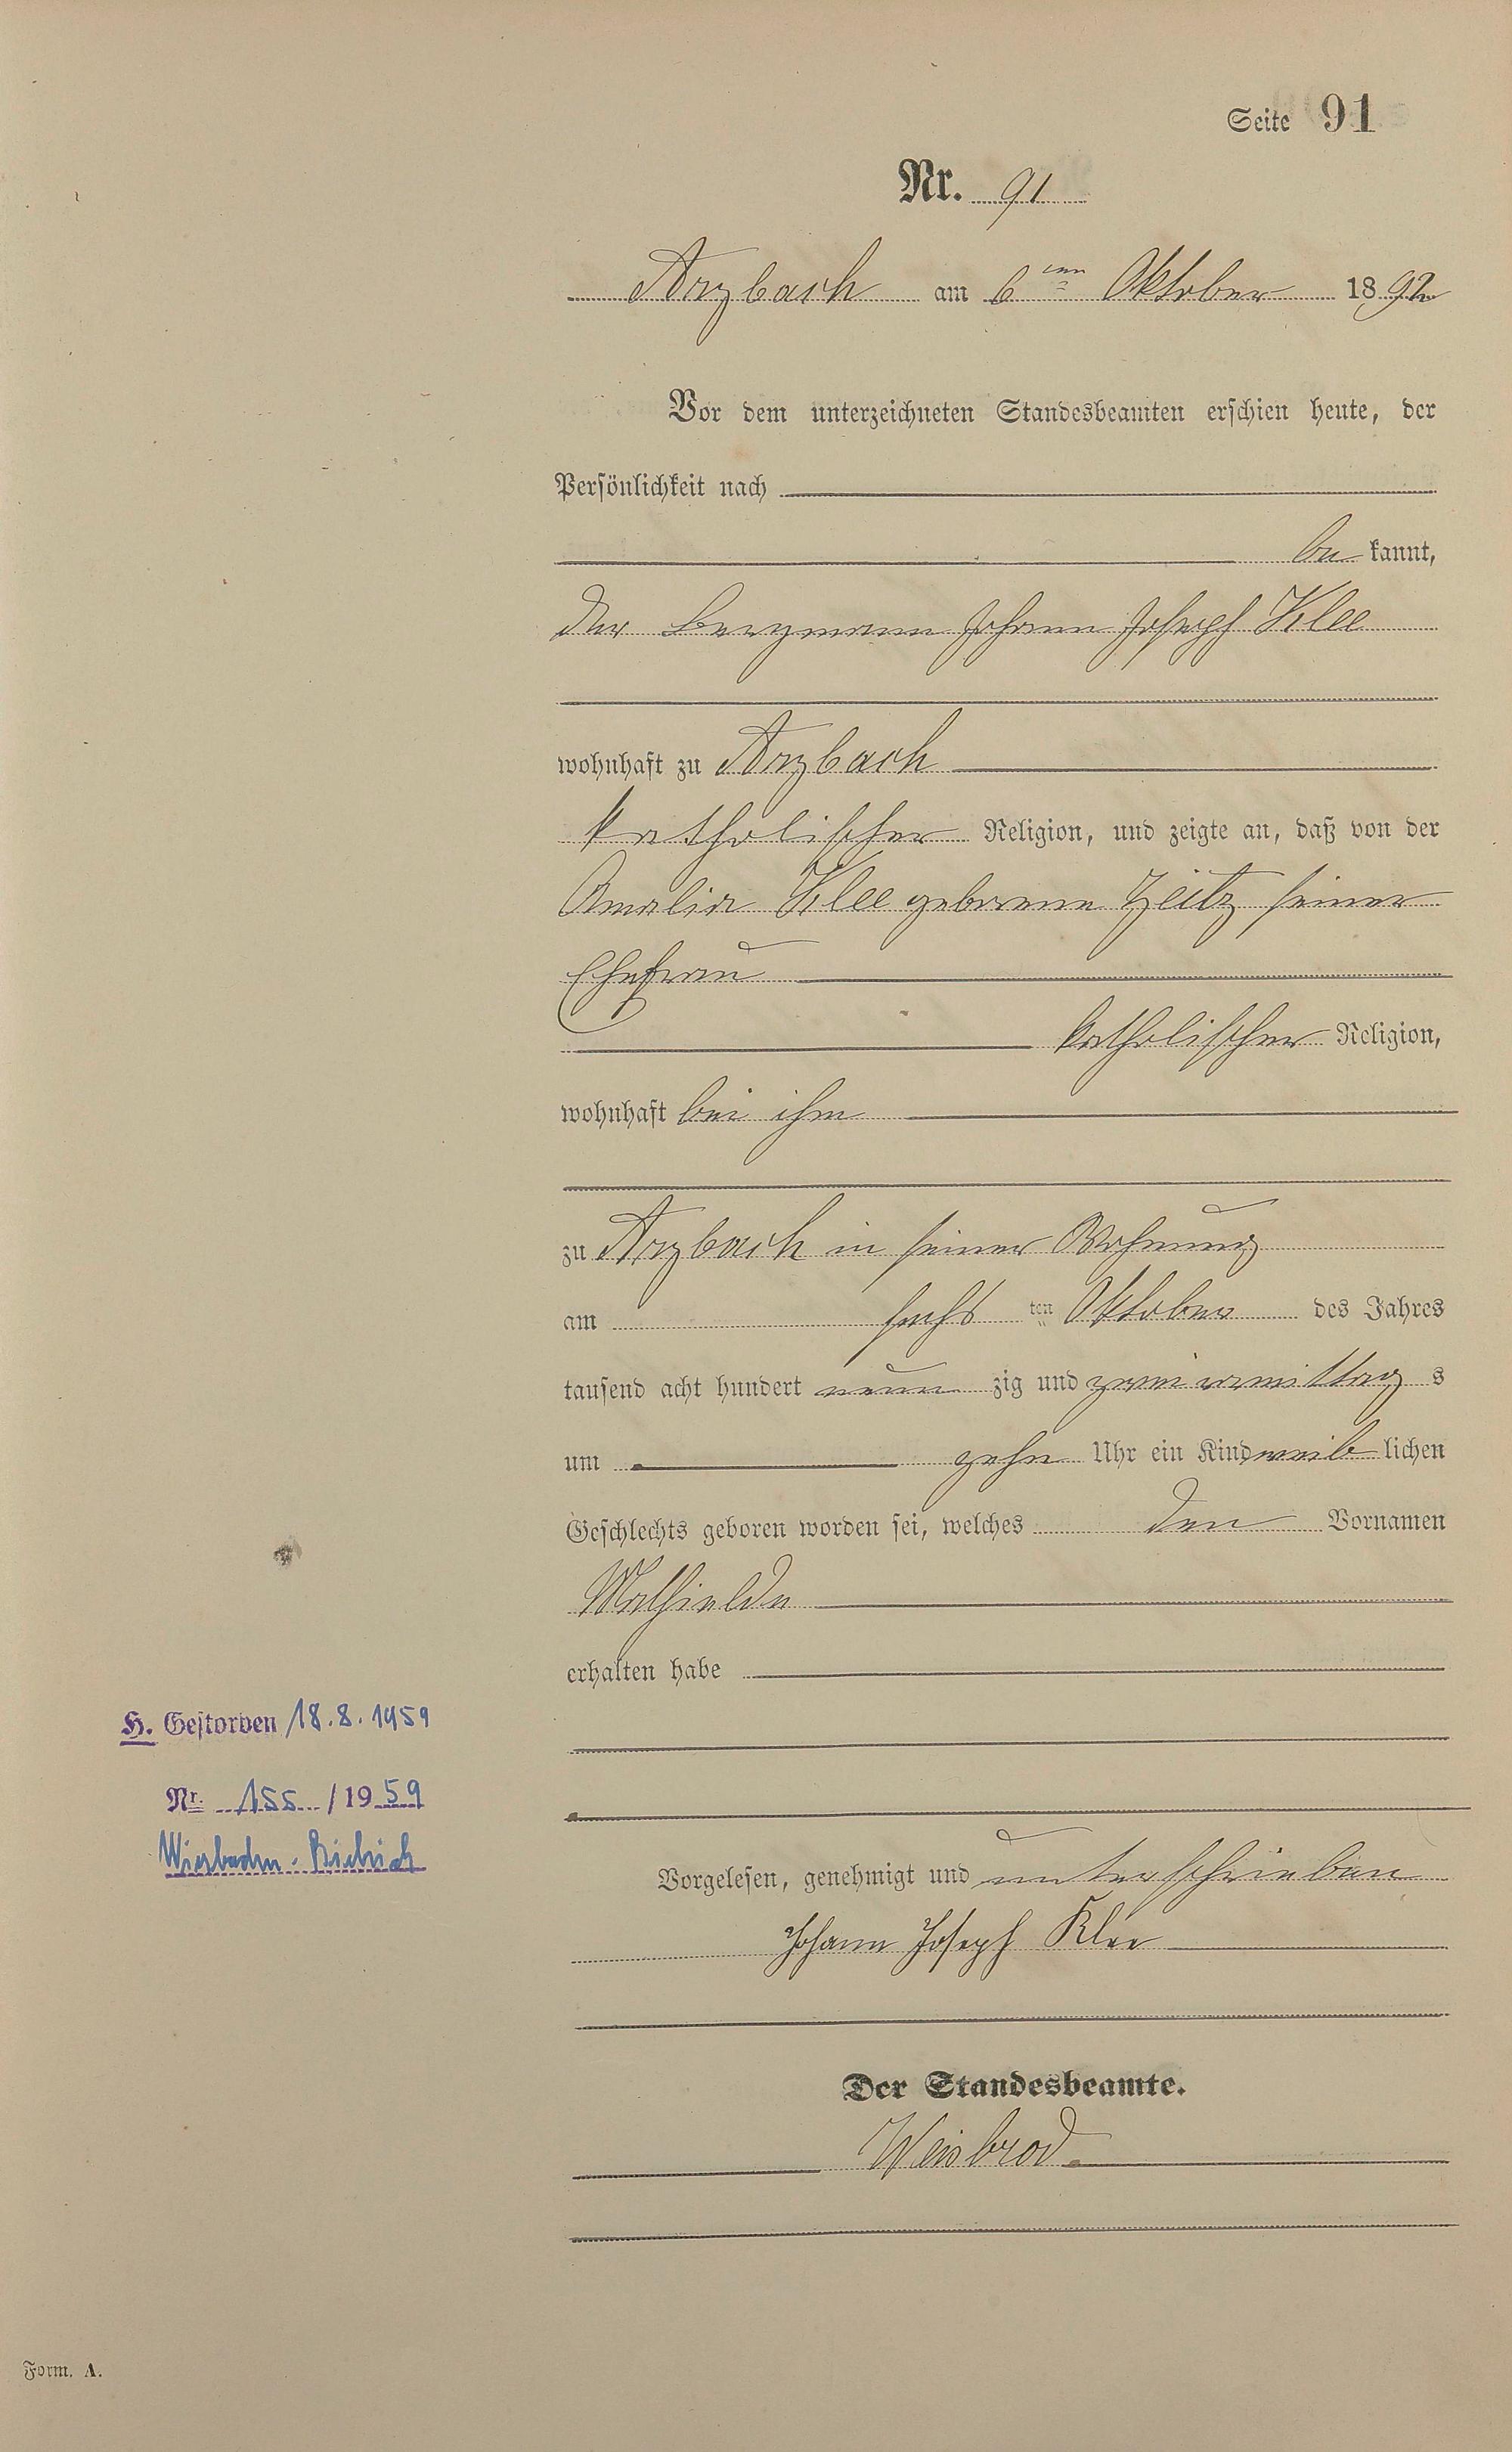 Seite 91
Nr. 91
Arzbach am 6ten Oktober 1892
Vor dem unterzeichneten Standesbeamten erschien heute, der
Persönlichkeit nach
be kannt,
der Bergmann Johann Joseph Klee
wohnhaft zu Arzbach
katholischer Religion, und zeigte an, daß von der
Amalia Klee geborene Zeitz seiner
Ehefrau
katholischer Religion,
wohnhaft bei ihm
zu Arzbach in seiner Wohnung
am sechs ten Oktober des Jahres
tausend acht hundert neun zig und zwei vormittag s
um zehn Uhr ein Kind weib lichen
Geschlechts geboren worden sei, welches den Vornamen
Mathielde
erhalten habe
H. Gestorben 18.8.1959
Nr. 155 / 1959
Wiesbaden-Biebrich
Vorgelesen, genehmigt und unterschrieben
Johann Joseph Klee
Der Standesbeamte.
Weisbrod
Form. A.